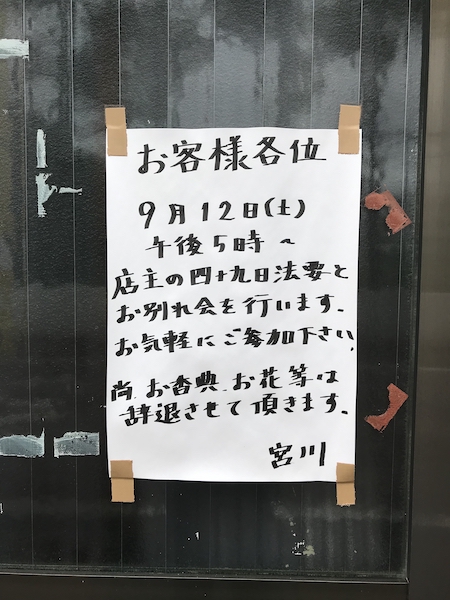 お客様各位
9月12日(土)
午後5時~
店主の四十九日法要と
お別れ会を行います.
お気軽にご参加下さい.
尚、お香典、お花等は
辞退させて頂きます.
宮川